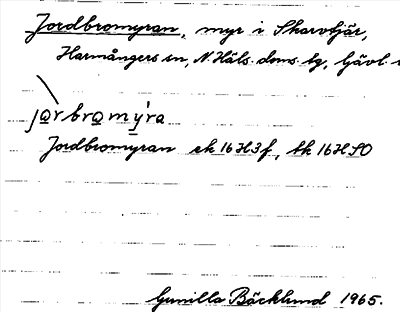 Jordbromyran, myr i Skarvtjär,
Harmångers sn, N. Häls. doms. tg, Gävl.
jo̲rbro̲mý̲ra
Jordbromyran ek 16H3f, tk 16H SO
Gunilla Bäcklund 1965.